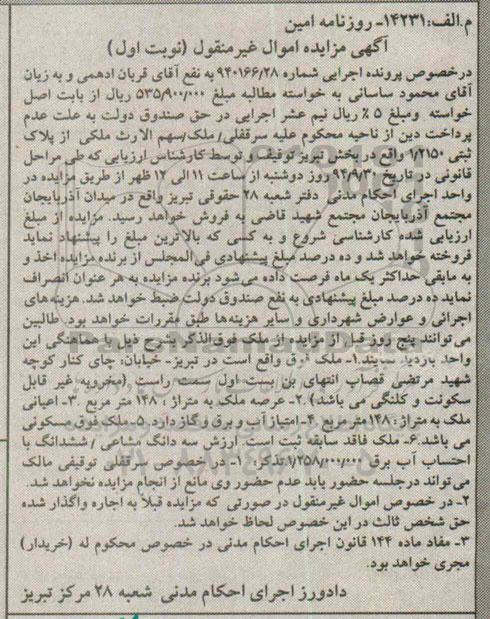 م.الف:۱۴۲۳۱- روزنامه امین
آگهی مزایده اموال غیرمنقول (نوبت اول)
درخصوص پرونده اجرایی شماره ۹۴۰۱۶۶/۲۸ به نفع آقای قربان ادهمی و به زیان
آقای محمود ساسانی به خواسته مطالبه مبلغ ۵۳۵/۹۰۰/۰۰۰ ریال از بابت اصل
خواسته ومبلغ ۵ ٪ ریال نیم عشر اجرایی در حق صندوق دولت به علت عدم
پرداخت دین از ناحیه محکوم علیه سرقفلی/ ملک/سهم الارث ملکی از پلاک
ثبتی ۱/۲۱۵۰ واقع در بخش تبریز توقیف و توسط کارشناس ارزیابی که طی مراحل
قانونی در تاریخ ۹۴/۹/۳۰ روز دوشنبه از ساعت ۱۱ الی ۱۲ ظهر از طریق مزایده در
واحد اجرای احکام مدنی دفتر شعبه ۲۸ حقوقی تبریز واقع در میدان آذربایجان
مجتمع آذربایجان مجتمع شهید قاضی به فروش خواهد رسید. مزایده از مبلغ
ارزیابی شده کارشناسی شروع و به کسی که بالاترین مبلغ را پیشنهاد نماید
فروخته خواهد شد و ده درصد مبلغ پیشنهادی فی‌المجلس از برنده مزایده اخذ و
به مابقی حداکثر یک ماه فرصت داده می‌شود برنده مزایده به هر عنوان انصراف
نماید ده درصد مبلغ پیشنهادی به نفع صندوق دولت ضبط خواهد شد. هزینه‌های
اجرائی و عوارض شهرداری و سایر هزینه‌ها طبق مقررات خواهد بود. طالبین
می‌توانند پنج روز قبل از مزایده از ملک فوق‌الذکر بشرح ذیل با هماهنگی این
واحد بازدید نمایند.۱- ملک فوق واقع است در تبریز- خیابان: چای کنار کوچه
شهید مرتضی قصاب انتهای بن بست اول سمت راست (مخروبه غیر قابل
سکونت و کلنگی می باشد).۲- عرصه ملک به متراژ : ۱۴۸ متر مربع .۳- اعیانی
ملک به متراژ : ۱۴۸ متر مربع ۴- امتیاز آب و برق و گاز دارد. ۵- ملک فوق مسکونی
می باشد.۶- ملک فاقد سابقه ثبت است. ارزش سه دانگ مشاعی / ششدانگ با
احتساب آب برق ۱/۲۵۸/۰۰۰/۰۰۰.تذکر: ۱- در خصوص سرقفلی توقیفی مالک
می‌تواند درجلسه حضور یابد عدم حضور وی مانع از انجام مزایده نخواهد شد.
۲- در خصوص اموال غیرمنقول در صورتی که مزایده قبلاً به اجاره واگذار شده
حق شخص ثالث در این خصوص لحاظ خواهد شد.
۳- مفاد ماده ۱۴۴ قانون اجرای احکام مدنی در خصوص محکوم له (خریدار)
مجری خواهد بود.
دادورز اجرای احکام مدنی شعبه ۲۸ مرکز تبریز